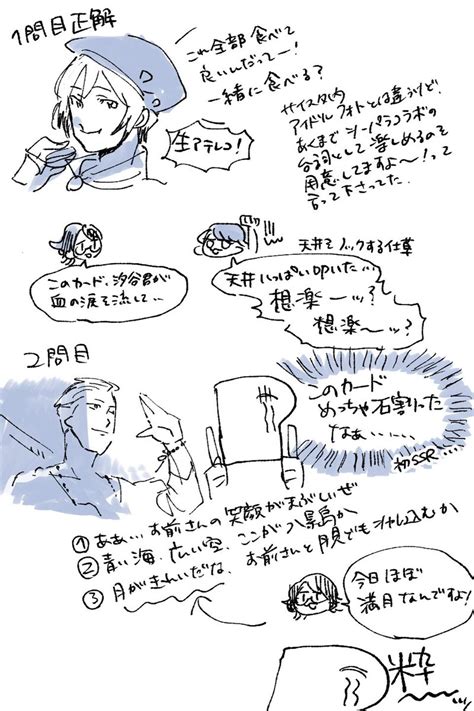 1問目正解
これ全部食べて
良いんだってー!
一緒に食べる?
生アテレコ!
サイスタ内
アイドルフォトとは違うけど、
あくまでシーパラコラボの
台詞として楽しめるの
用意してますよ〜!って
言って下さってた.
このカード、汐谷君が
血の涙を流して..
天井でノックする仕草
天井いっぱい叩いた...
想楽ーッ?
想楽〜ッ?
2問目
このカード
めっちゃ石割った
なぁ......
初SSR...
①ああ...お前さんの笑顔がまぶしいぜ
②青い海、広い空、ここが八景島か
③月がきれいだな、お前さんと腹でも
今日ほぼ
満月なんですよ!
粋